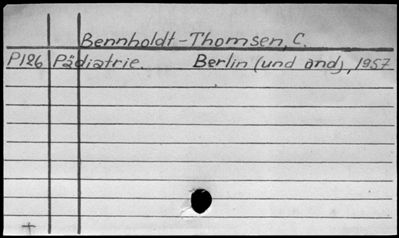 Bennholdt-Thomsen, C.
P126 Pädiatrie. Berlin (und and), 1957